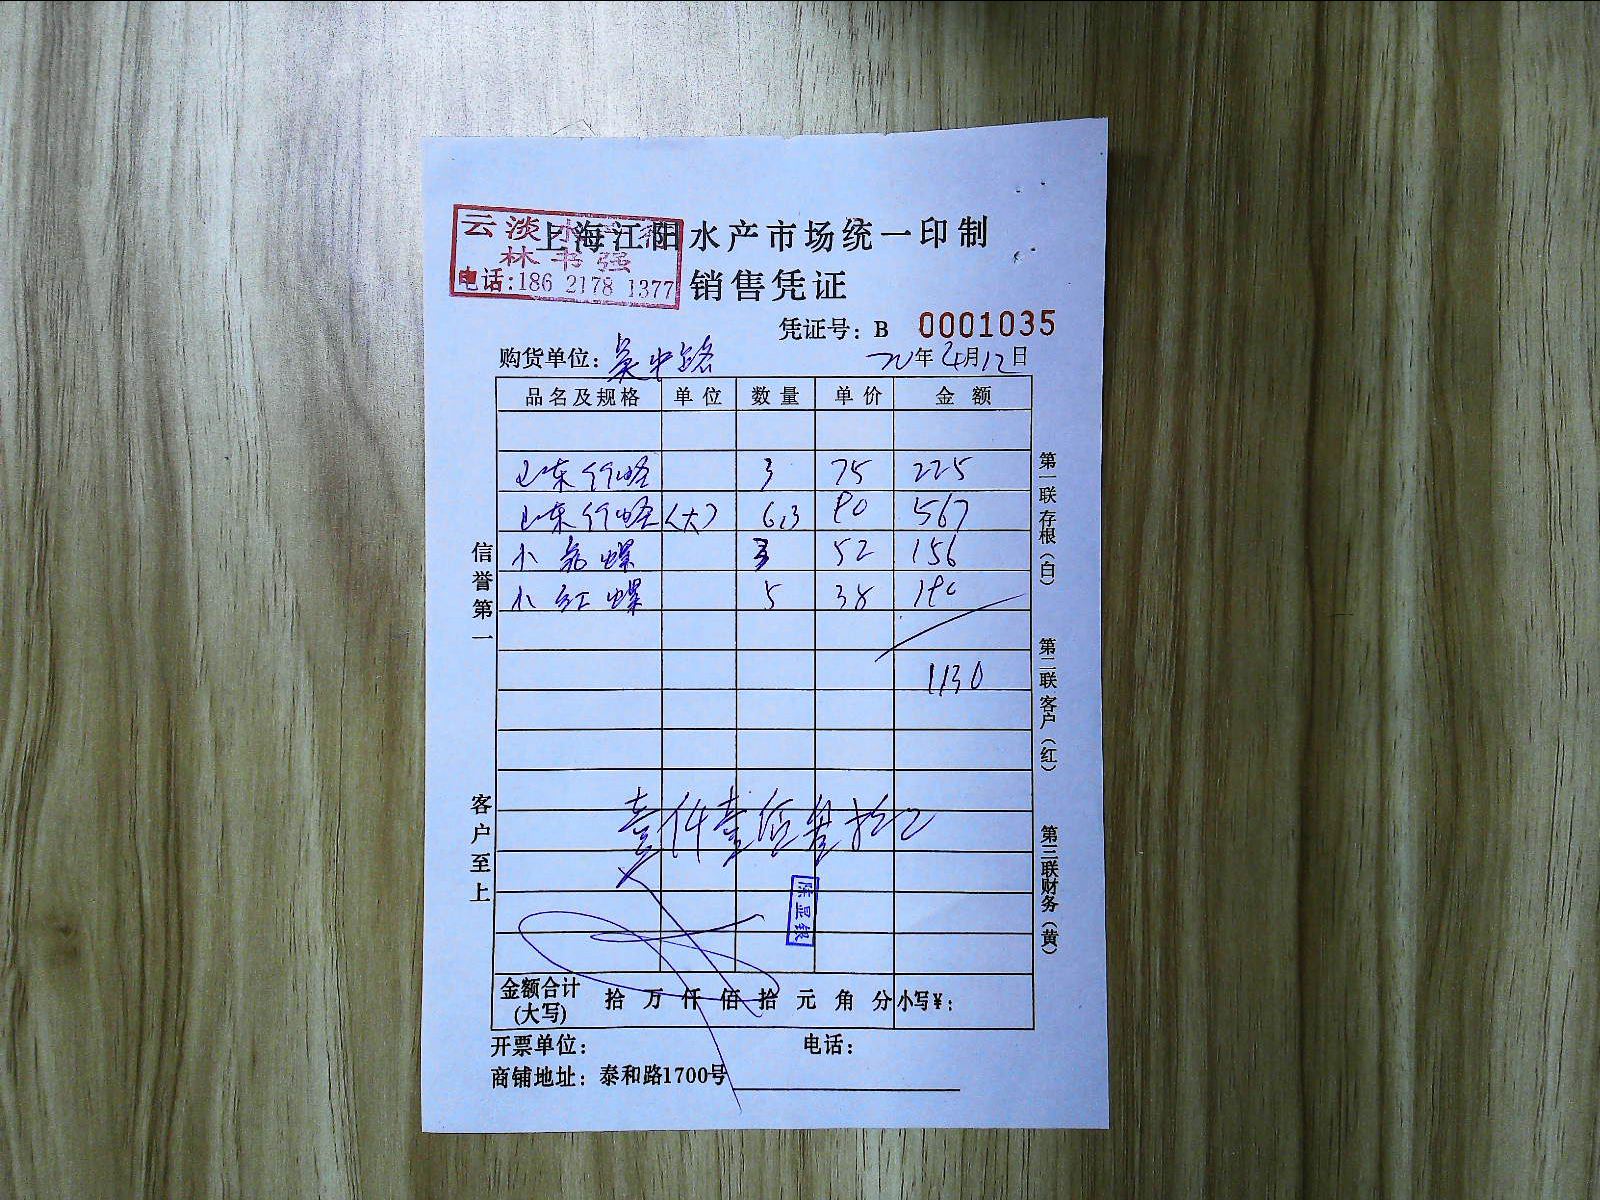 云淡水产行
林书强
电话:186 2178 1377
上海江阳水产市场统一印制
销售凭证
凭证号: B 0001035
购货单位: 吴中路 20年4月12日
品名及规格 单位 数量 单价 金额
山东竹蛏 3 75 225
山东竹蛏 (大) 6.3 90 567
小 螺 3 52 156
小红螺 5 38 190
1130
壹仟壹佰叁拾元
信誉第一
客户至上
第一联存根(白)
第二联客户(红)
第三联财务(黄)
金额合计(大写) 拾 万 仟 佰 拾 元 角 分 小写¥:
开票单位: 电话:
商铺地址: 泰和路1700号